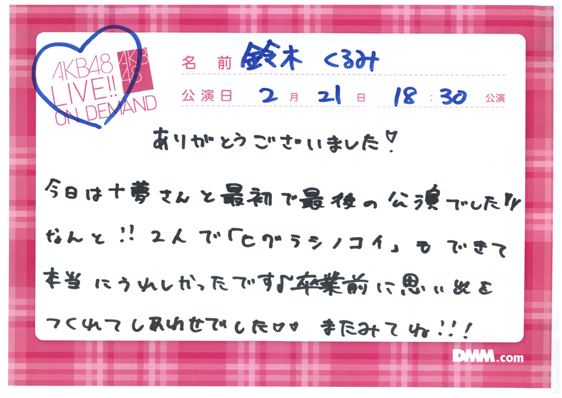 AKB48
LIVE!!
ON DEMAND
AKB
48
名前 鈴木 くるみ
公演日 2月21日 18:30 公演
ありがとうございました♡
今日は十夢さんと最初で最後の公演でした!!
なんと!! 2人で「ヒグラシノコイ」もできて
本当にうれしかったです♪卒業前に思い出を
つくれてしあわせでした♡♡ またみてね!!!
DMM.com